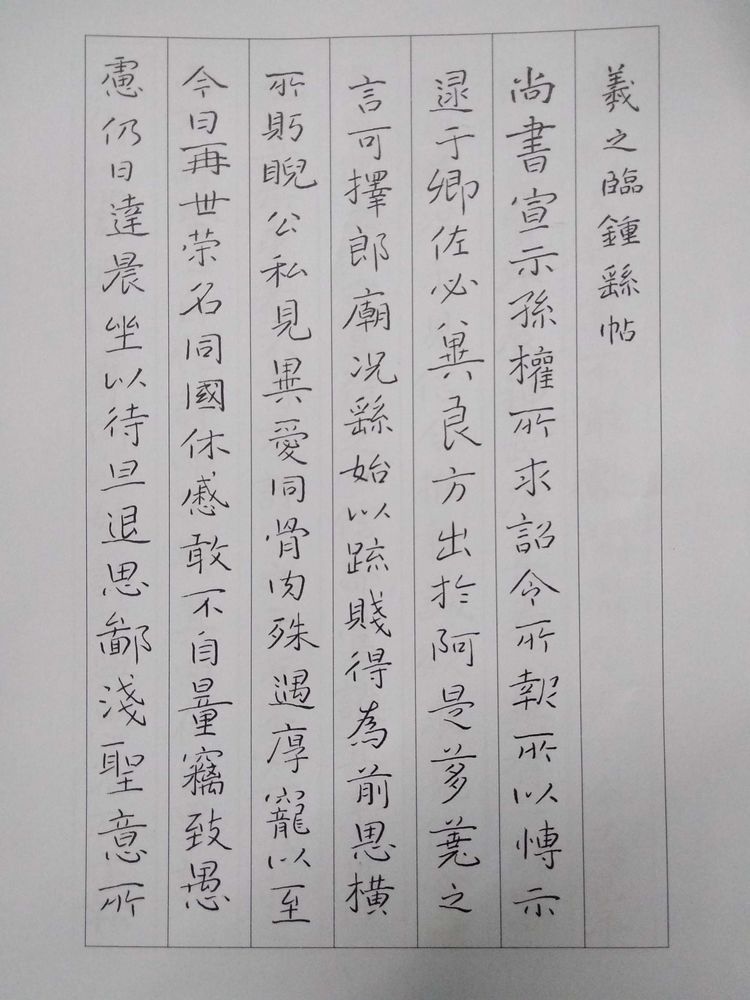 羲之臨鍾繇帖
尚書宣示孫權所求詔令所報所以博示
逮于卿佐必冀良方出於阿是芻蕘之
言可擇郎廟况繇始以疏賤得為前恩橫
所眄睨公私見異愛同骨肉殊遇厚寵以至
今日再世荣名同國休慼敢不自量竊致愚
慮仍日達晨坐以待旦退思鄙淺聖意所